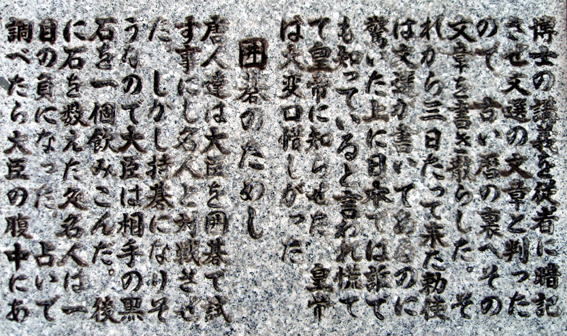 博士の講義を従者に暗記
させ文選の文章と判った
ので 古い暦の裏へその
文章を書き散らした。そ
れから三日たって来た勅使
は文選が書いてあるのに
驚いた上に日本では誰で
も知っていると言われ慌て
て皇帝に知らせた 皇帝
は大変口惜しがった
囲碁のためし
唐人達は大臣を囲碁で試
す事にし名人と対戦させ
た しかし持碁になりそ
うなので大臣は相手の黒
石を一個飲みこんだ。後
に石を数えた処名人は一
目の負になった 占いで
調べたら大臣の腹中にあ